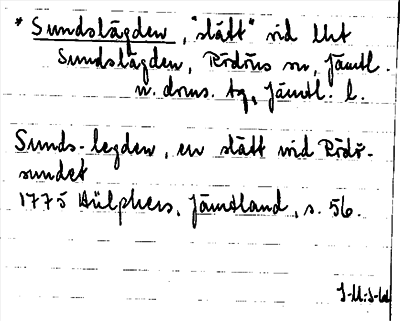 * Sundslägden, "slätt" vid Utt
Sundslägden, Rödöns sn, Jämtl.
n. doms. tg, Jämtl. l.
Sunds-legden, en slätt vid Rödö-
sundet
1775 Hülphers, Jämtland, s. 56.